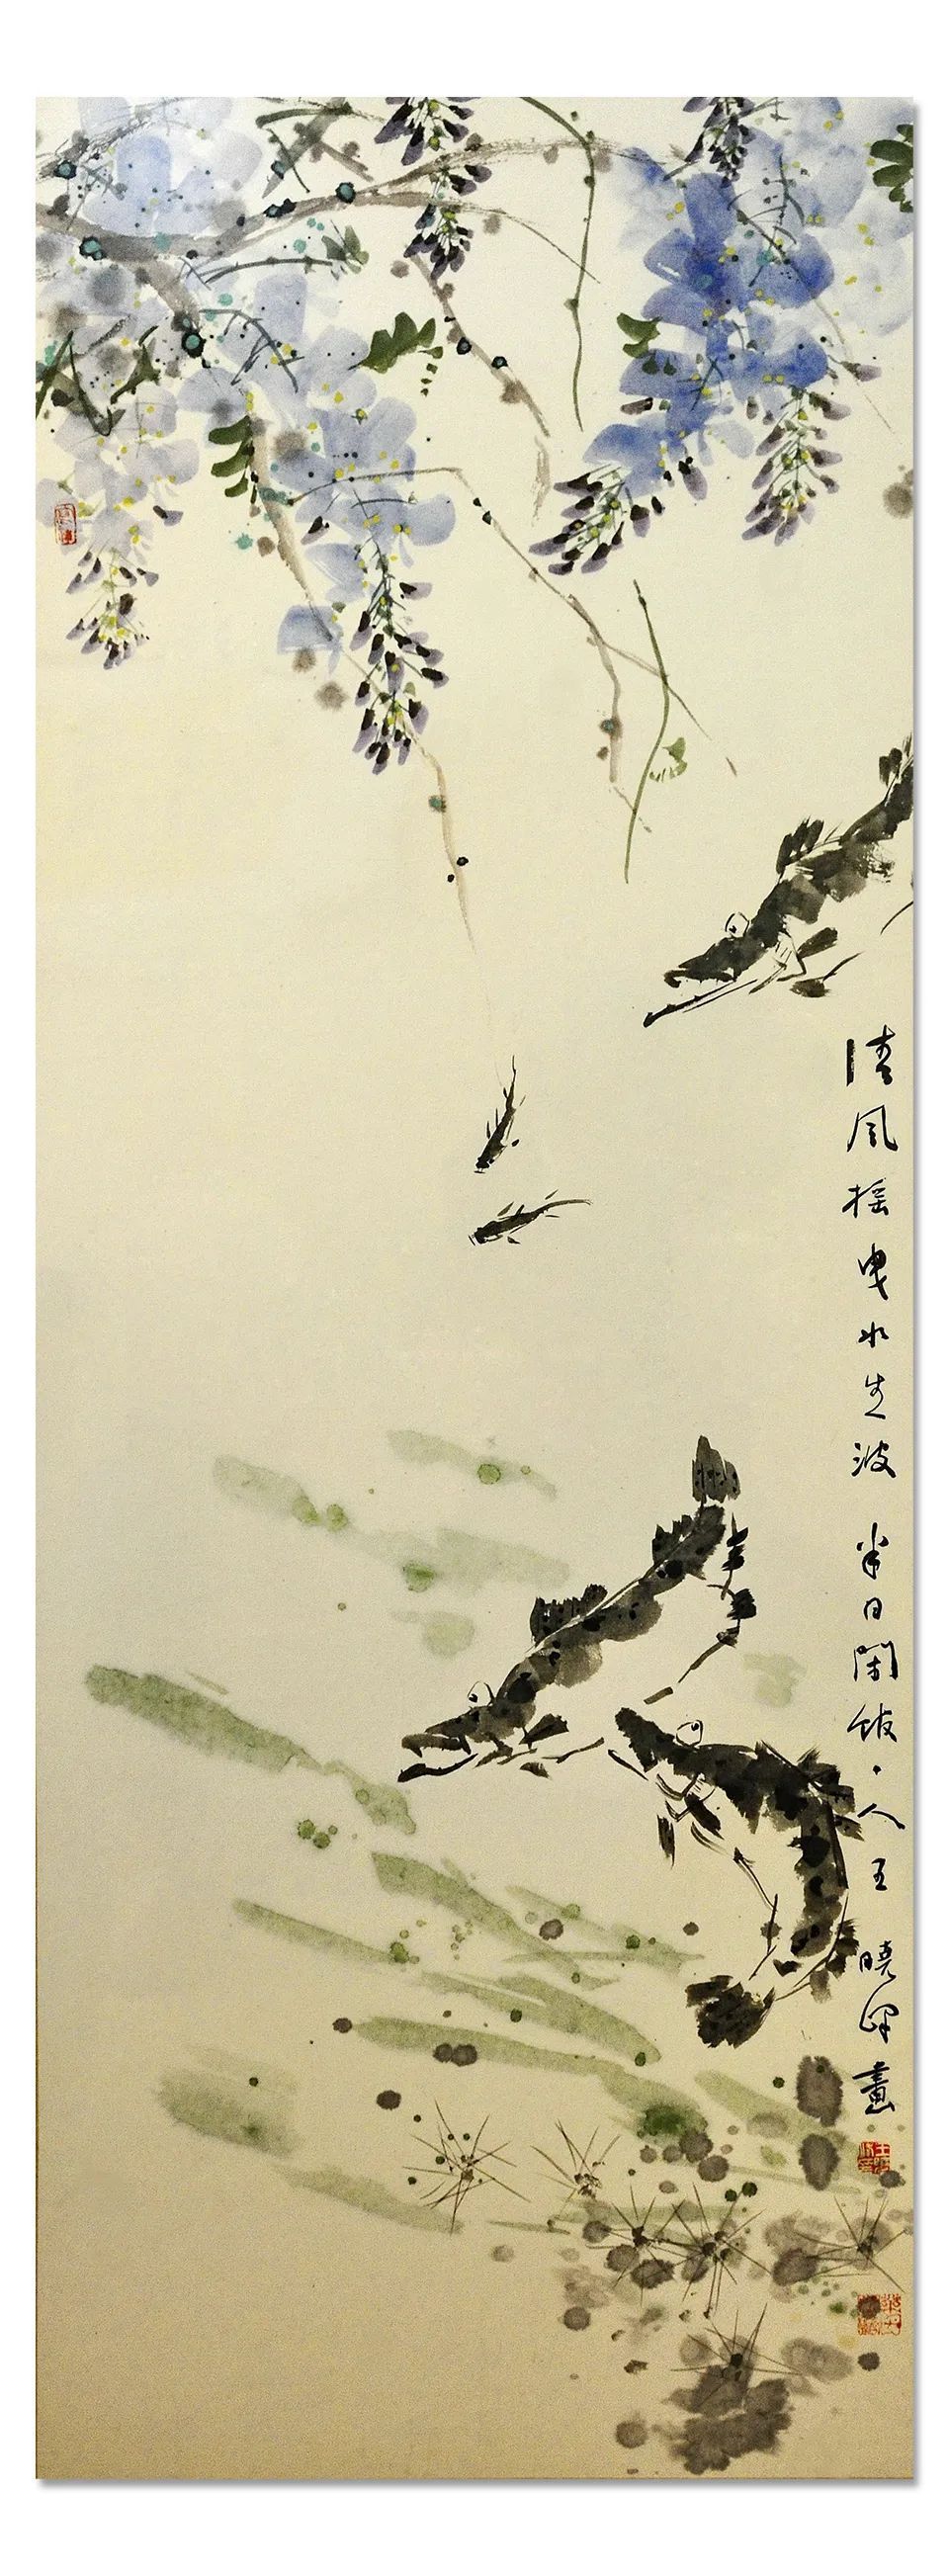 清风摇曳水生波 半日闲饭·人王晓晖画